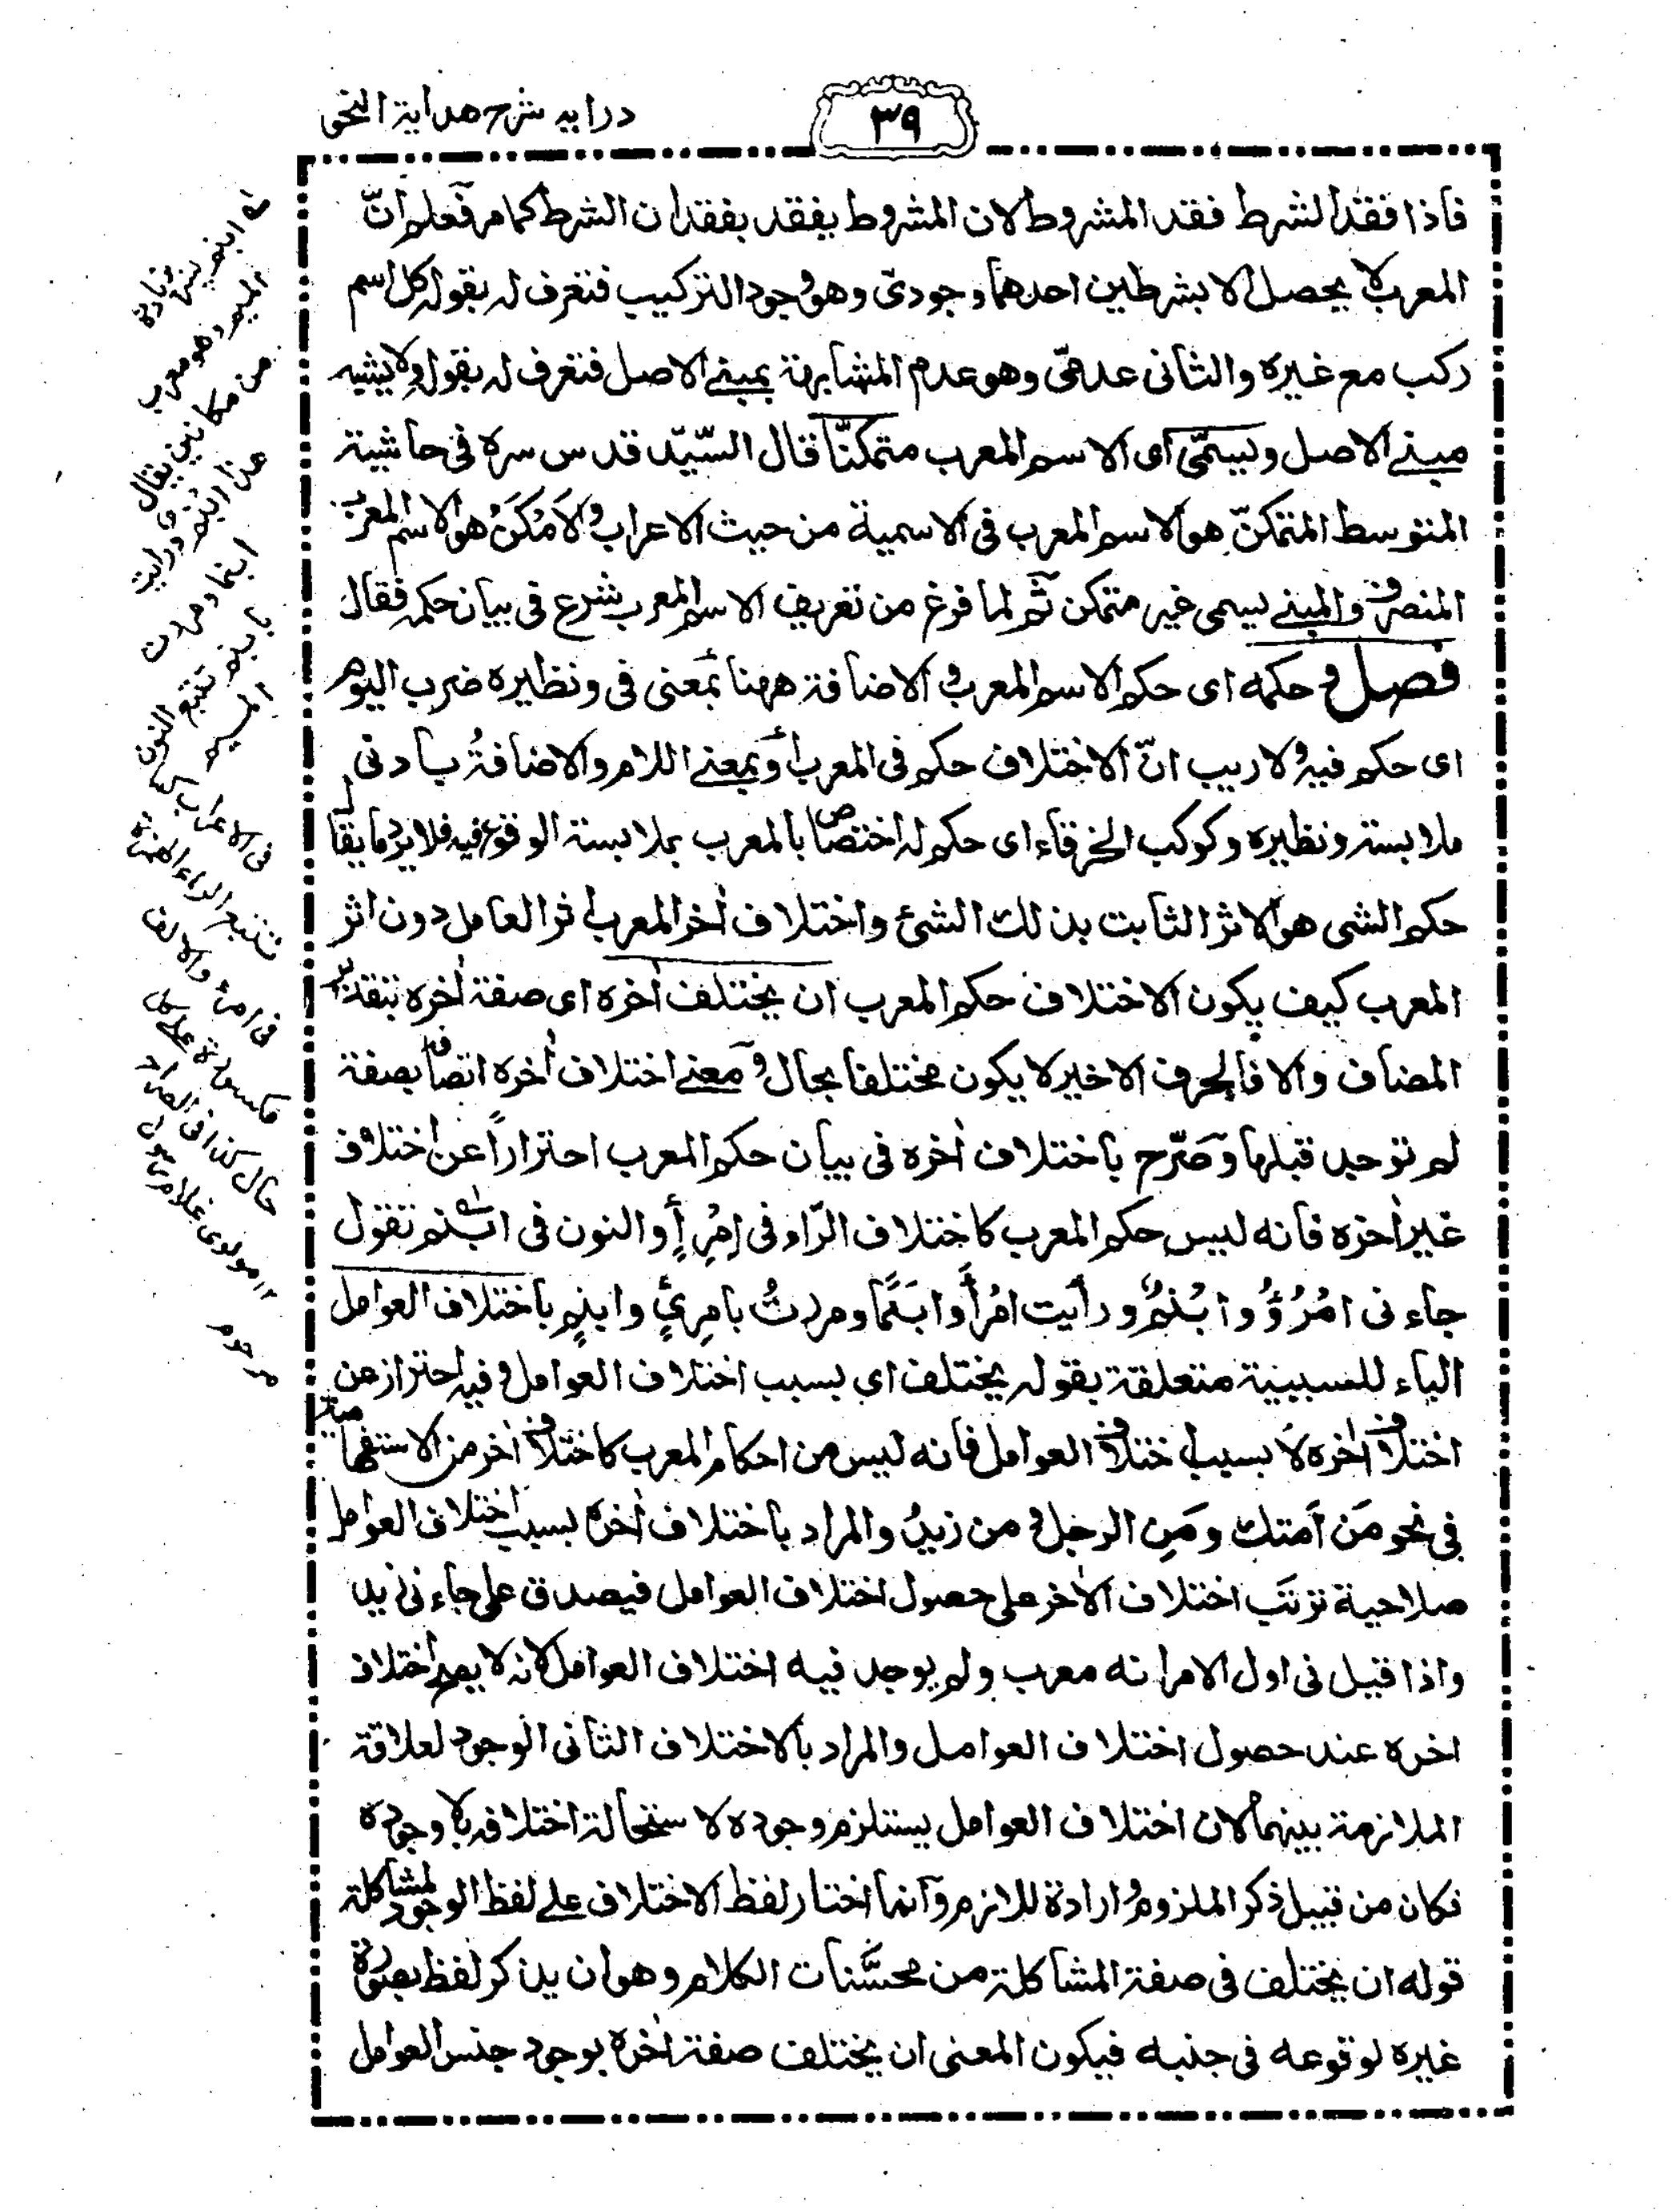 درايه شرح هداية النحو
٣٩
فاذا فقد الشرط فقد المشروط لان المشروط يفقد بفقدان الشرط كما مر فعلم انّ
المعرب لا يحصل الا بشرطين احدهما وجودىّ وهو وجود التركيب فتعرف له بقوله كل اسم
ركب مع غيره والثانى عدمىّ وهو عدم المشابهة بمبنے الاصل فتعرف له بقوله ولا يشبه
مبنے الاصل ويسمّى اى الاسم المعرب متمكنّا قال السّيّد قدس سره فى حاشية
المتوسط المتمكنّ هو الاسم المعرب فى الاسمية من حيث الاعراب والاَمْكَنُ هو الاسم المعرب
المنصرف والمبنے يسمى غير متمكن ثم لما فرغ من تعريف الاسم المعرب شرع فى بيان حكمه فقال
فصل وحكمه اى حكم الاسم المعرب والاضافة ههنا بمعنى فى ونظيره ضرب اليوم
اى حكم فيه ولا ريب انّ الاختلاف حكم فى المعرب أو بمعنے اللام والاضافةُ بادنى
ملابسته ونظيره وكوكب الخرقاء اى حكم له اختصاص بالمعرب بملابسة الوقوع فيه فلا يرد ما يقال
حكم الشى هو الاثر الثابت بذلك الشئ واختلاف اٰخر المعرب اثر العامل دون اثر
المعرب كيف يكون الاختلاف حكم المعرب ان يختلف اٰخره اى صفة اٰخره بتقدير
المضاف والا فالحرف الاخير لا يكون مختلفا بحال ومعنے اختلاف اٰخره اتصاف بصفة
لم توجد قبلها وصَرّح باختلاف اٰخره فى بيان حكم المعرب احترازاً عن اختلاف
غير اٰخره فانه ليس حكم المعرب كاختلاف الرّاء فى اِمْرِأٍ والنون فى ابنم تقول
جاءنى امْرُؤٌ وابْنُمٌ ورأيت امْرَأً وابنَمًا ومررتُ بامِرِئٍ وابنِمٍ باختلاف العوامل
الباء للسببية متعلقة بقوله يختلف اى بسبب اختلاف العوامل وفيه احتراز عن
اختلاف اٰخره لا بسبب اختلاف العوامل فانه ليس من احكام المعرب كاختلاف اٰخر من الاستفهامية
فى نحو مَن اَمتك ومَنِ الرجل ومن زيدٌ والمراد باختلاف اٰخره بسبب اختلاف العوامل
صلاحية ترتّب اختلاف الاٰخر على حصول اختلاف العوامل فيصدق على جاءنى زيد
واذا قيل فى اول الامر انه معرب ولم يوجد فيه اختلاف العوامل لانه لا يصير اختلاف
اخره عند حصول اختلاف العوامل والمراد بالاختلاف الثانى الوجود لعلاقة
الملازمة بينهما لان اختلاف العوامل يستلزم وجوده لاستحالة اختلافه بلا وجوده
فكان من قبيل ذكر الملزوم وارادة للازم وانما اختار لفظ الاختلاف علے لفظ الوجود لمشاكلة
قوله ان يختلف فى صفة المشاكلة من محسّنات الكلام وهو ان يذكر لفظ بصورة
غيره لوقوعه فى جنبه فيكون المعنى ان يختلف صفة اٰخره بوجود جنس العوامل
بزيادة
الميم وهو معرب
من مكانين يقال
هذا ابنم ورايت
ابنما ومررت
بابنم تتبع النون
الميم
فى الاعراب كما
تتبع الراء الهمزة
فى امرئ والالف
مكسورة على كل
حال كذا فى الصراح
١٢ مولوى غلام
مرحوم